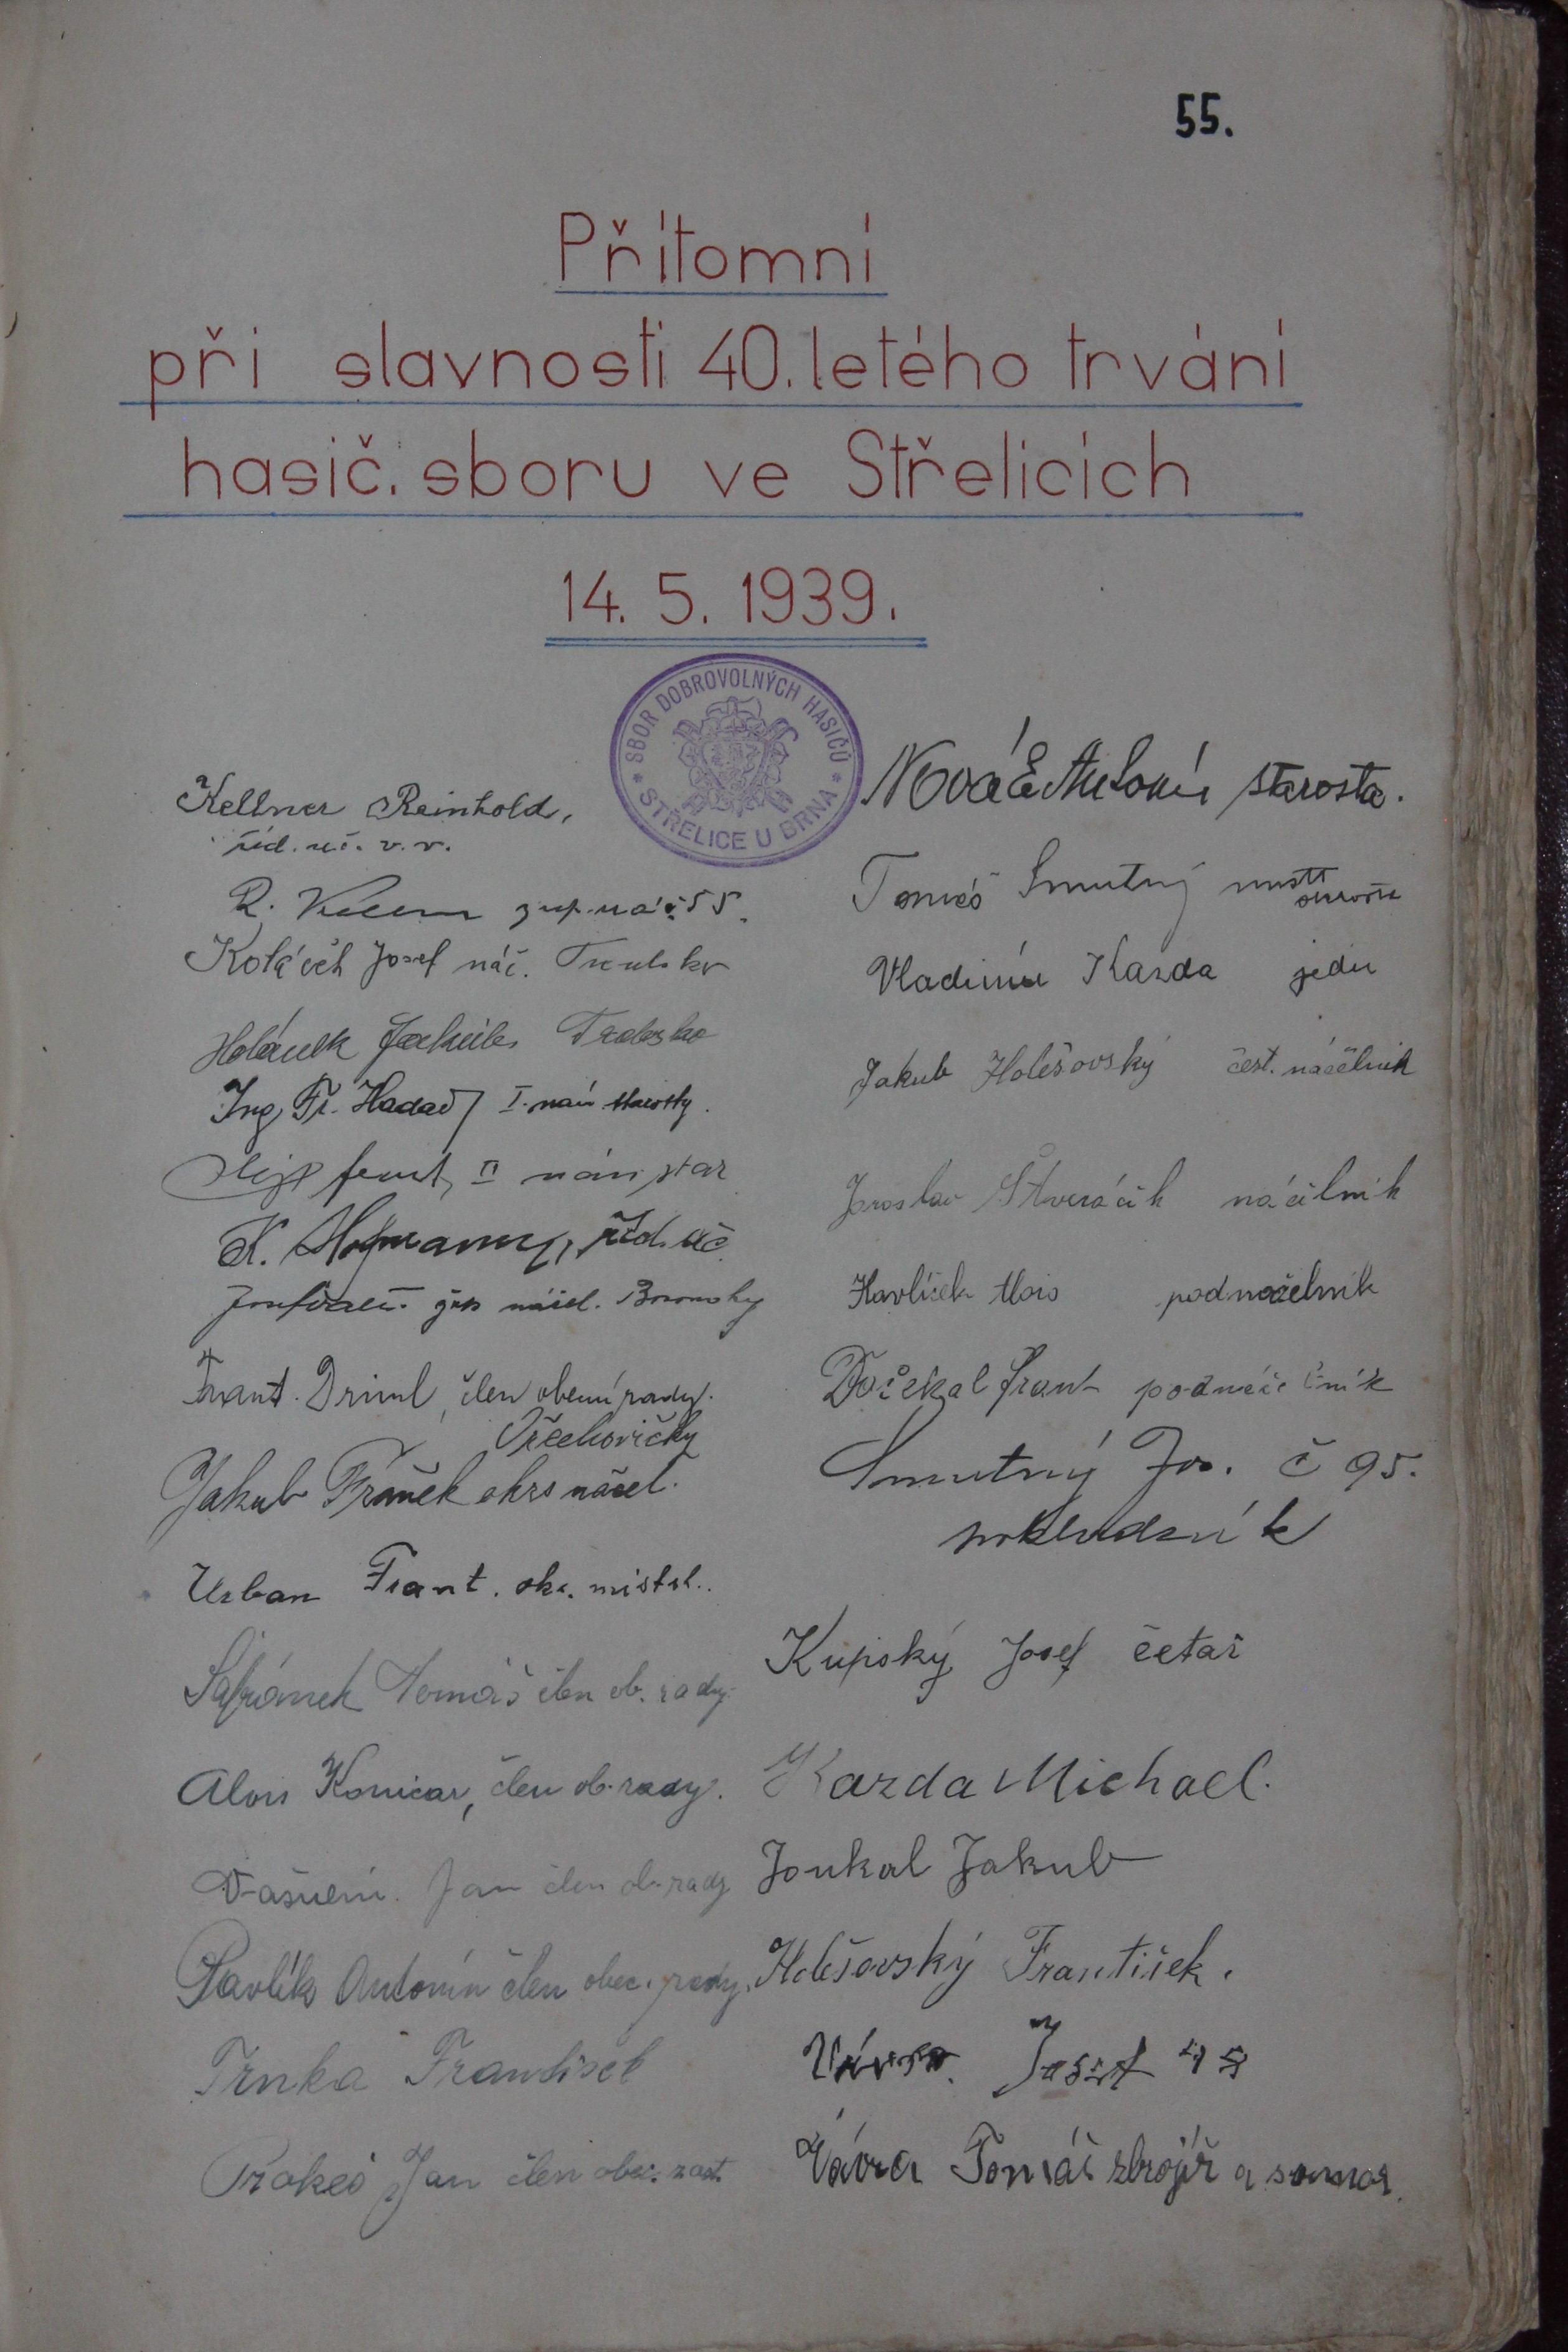 55.
Přítomní
při slavnosti 40. letého trvání
hasič. sboru ve Střelicích
14. 5. 1939.
SBOR DOBROVOLNÝCH HASIČŮ
STŘELICE U BRNA
Kellner Reinhold,
říd. uč. v. v.
R.
Koláček Josef náč.
Jakub
Ing. Fr. Hadač I. nám. starosty.
II nám star
K. Hofmann, říd. uč.
žup náčel.
Frant. Driml, člen obecní rady.
Ořechovičky
Jakub Franěk okrs náčel.
Urban Frant. okr. místst..
Šafránek Tomáš člen ob. rady.
Alois Konicar, člen ob. rady.
Jan člen ob. rady
Pavlík Antonín člen obec. rady.
Trnka František
Prokeš Jan člen obec. zast.
Novák Antonín starosta.
Tomáš Smutný
Vladimír Kazda jedn
Jakub Holešovský čest. náčelník
Jaroslav Štveráčík náčelník
Havlíček Alois podnáčelník
Dočekal Frant podnáčelník
Smutný Jos. č 95.
pokladník
Kupský Josef četař
Kazda Michael.
Joukal Jakub
Holešovský František.
Vávra. Josef
Vávra Tomáš zbrojíř a samar.